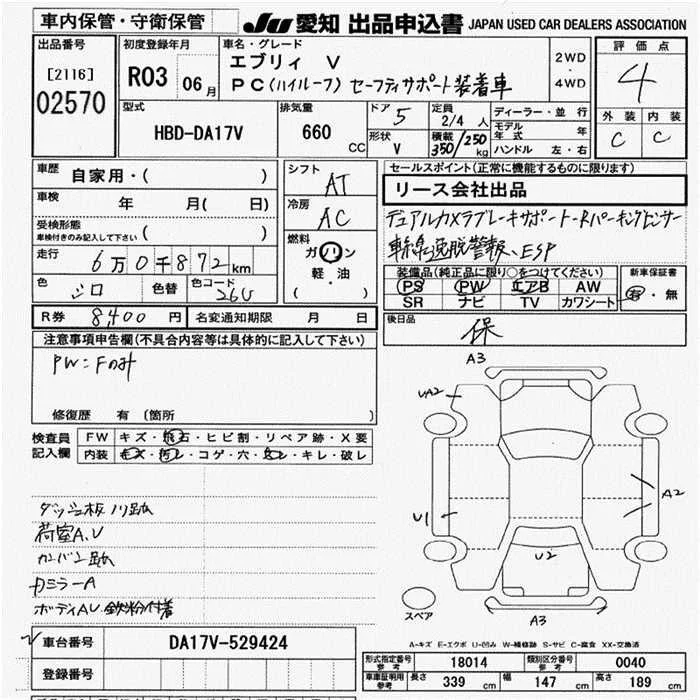 車内保管・守衛保管
JU 愛知 出品申込書 JAPAN USED CAR DEALERS ASSOCIATION
出品番号
[2116]
02570
初度登録年月
R03 06月
車名・グレード
エブリィ V
PC(ハイルーフ) セーフティサポート装着車
2WD
・
4WD
評価点
4
外装 内装
C C
型式
HBD-DA17V
排気量
660 CC
ドア 5
形状 V
定員 2/4 人
積載 350/250 kg
ディーラー・並行
モデル年式 年
ハンドル 左・右
車歴 自家用・( )
車検 年 月( 日)
受検形態
車検付きのみ記入して下さい ( )
走行 6万0千872km
色 シロ 色替 色コード 26U
シフト AT
冷房 AC
燃料
ガソリン
軽・油
( )
R券 8,400 円 名変通知期限 月 日
セールスポイント(正常に機能するものに限ります)
リース会社出品
デュアルカメラブレーキサポート・Rパーキングセンサー
車線逸脱警報、ESP
装備品(純正品に限り○をつけてください)
PS PW エアB AW
SR ナビ TV カワシート
新車保証書
有・無
後日品
保
注意事項申告欄(不具合内容等は具体的に記入して下さい)
PW:Fのみ
修復歴 有 〔箇所 〕
検査員記入欄
FW キズ・飛石・ヒビ割・リペア跡・X要
内装 キズ・汚レ・コゲ・穴・スレ・キレ・破レ
ダッシュ板ノリ跡
荷室A.U
カバン跡
ミラーA
ボディAU 鉄粉付着
A3
UA2
A2
U1
U2
A3
スペア
A-キズ E-エクボ U-凹み W-補修跡 S-サビ C-腐食 XX-交換済
車台番号 DA17V-529424
登録番号
型式指定番号 参考 18014 類別区分番号 参考 0040
車庫証明用 参考 長さ 339 cm 幅 147 cm 高さ 189 cm